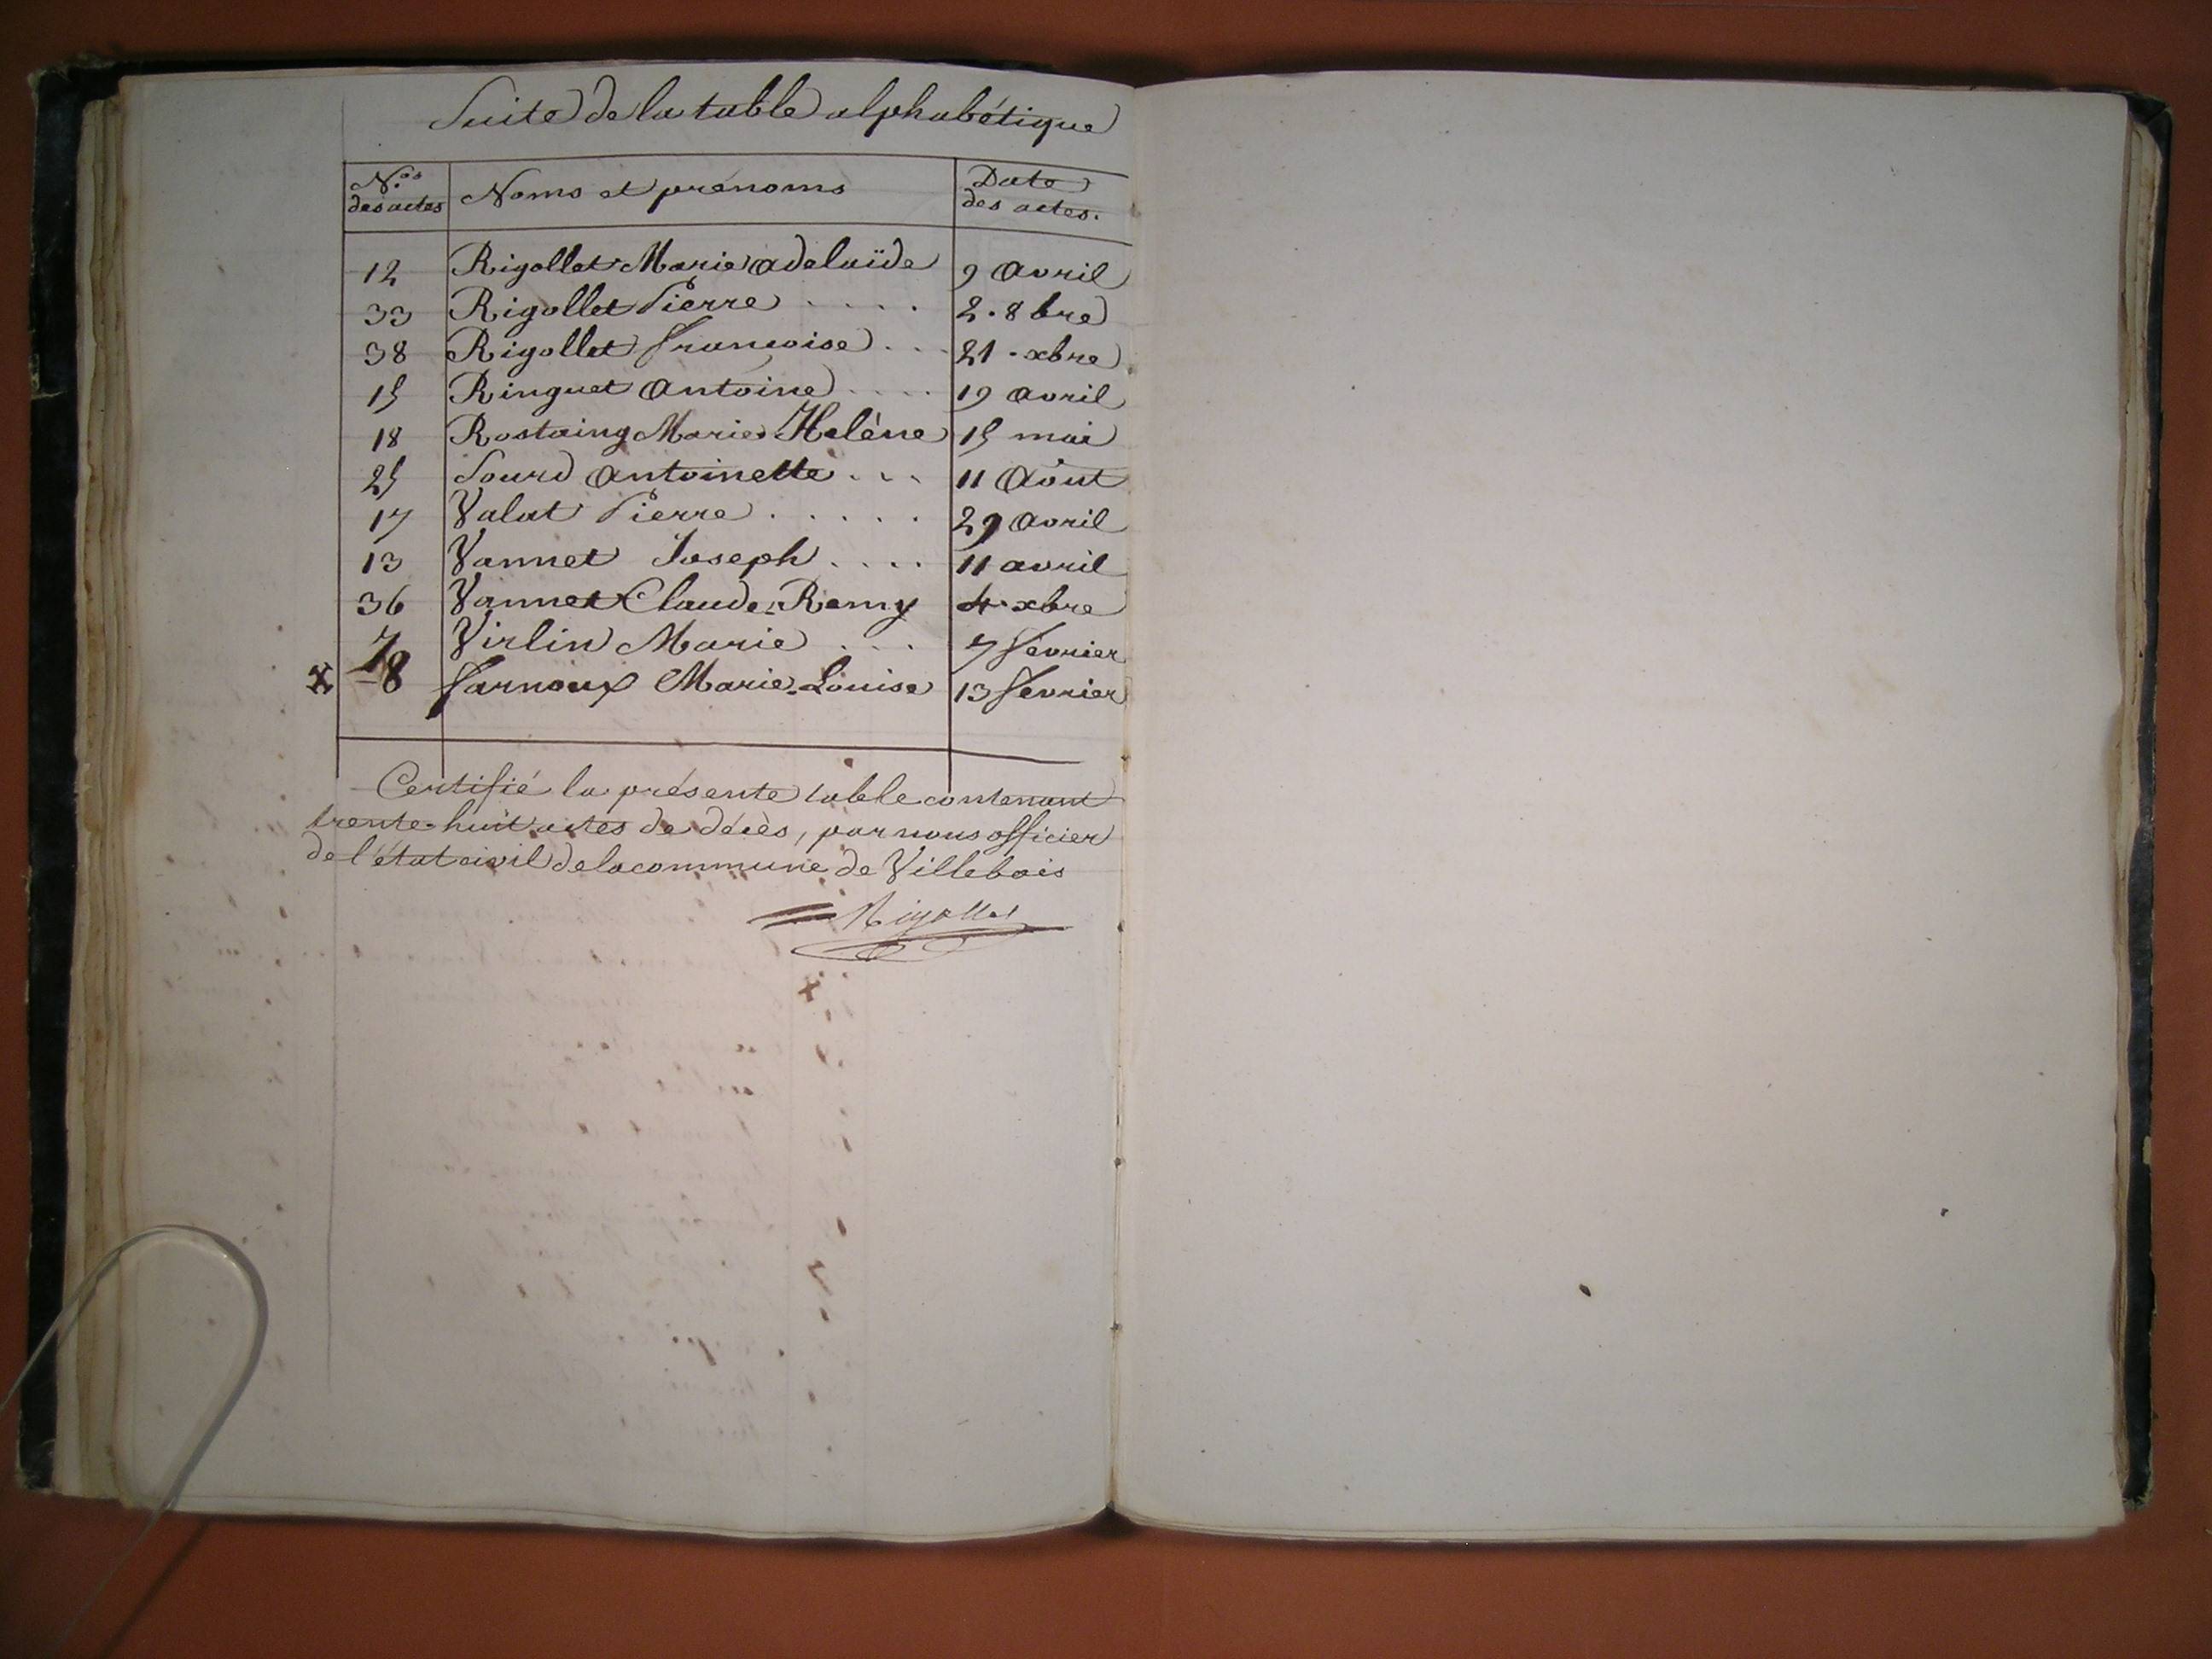 Suite de la table alphabétique
N.os des actes Noms et prénoms Date des actes.
12 Rigollet Marie adelaïde 9 avril
33 Rigollet Pierre . . . . 2. 8bre
38 Rigollet françoise . . . 21. xbre
15 Ringuet antoine . . . . 19 avril
18 Rostaing Marie Helène 15 mai
25 Sourd antoinette . . . 11 Août
17 Valat Pierre . . . . . 29 avril
13 Vannet Joseph . . . . 11 avril
36 Vannet Claude-Remy 4. xbre
7 Virlin Marie . . . 7 fevrier
x 8 farnoux Marie-Louise 13 fevrier
Certifié la présente table contenant
trente-huit actes de décès, par nous officier
de l'état civil de la commune de Villebois
Rigollet